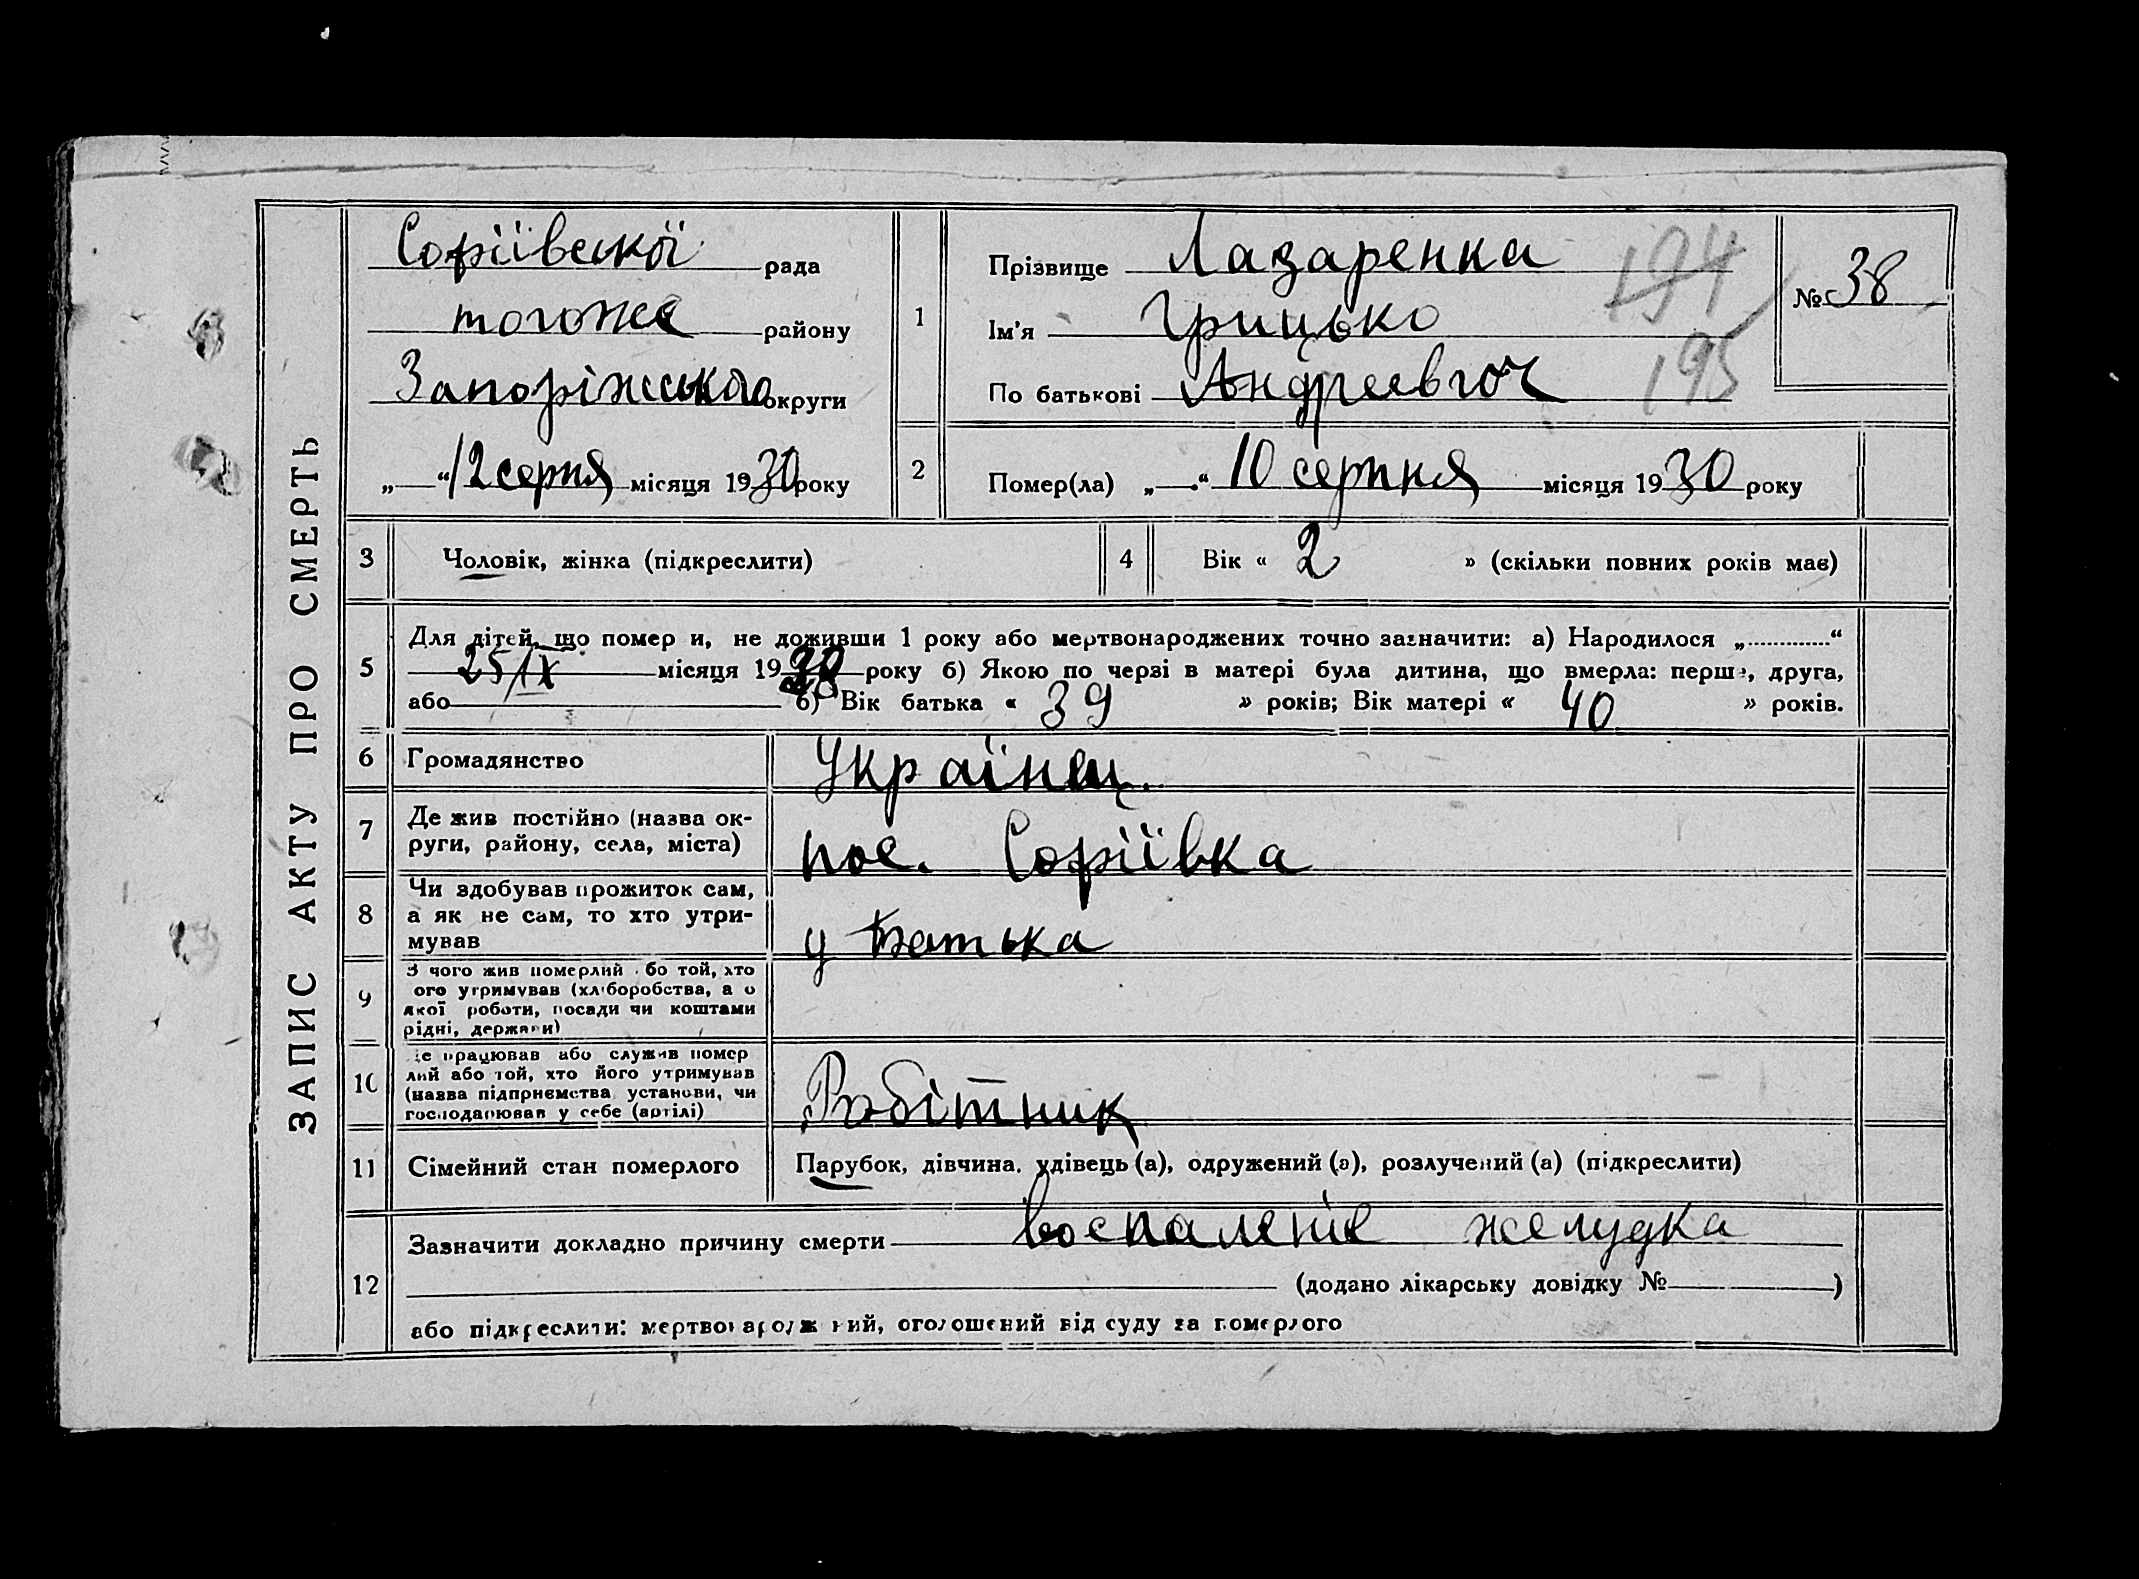 ЗАПИС АКТУ ПРО СМЕРТЬ
Софіївскої рада
тогоже району
Запоріжського округи
„ “ 12 серпня місяця 1930 року
1
Прізвище Лазаренка
Ім'я Грицько
По батькові Андреевич
194
195
№ 38
2
Помер(ла) „ “ 10 серпня місяця 1930 року
3 Чоловік, жінка (підкреслити)
4 Вік « 2 » (скільки повних років має)
5
Для дітей, що помер и, не доживши 1 року або мертвонароджених точно зазначити: а) Народилося „ “
25/IX місяця 1928 року б) Якою по черзі в матері була дитина, що вмерла: перша, друга,
або в) Вік батька « 39 » років; Вік матері « 40 » років.
6 Громадянство Українец.
7 Де жив постійно (назва ок-
руги, району, села, міста) пос. Софіївка
8 Чи здобував прожиток сам,
а як не сам, то хто утри-
мував у батька
9 З чого жив померлий або той, хто
ого утримував (хліборобства, а о
якої роботи, посади чи коштами
рідні, держави)
10 Де працював або служив помер
лий або той, хто його утримував
(назва підприємства, установи, чи
господарював у себе (артілі) Робітник
11 Сімейний стан померлого Парубок, дівчина, удівець (а), одружений (а), розлучений (а) (підкреслити)
12
Зазначити докладно причину смерти воспаленіе желудка
(додано лікарську довідку № )
або підкреслити: мертвонароджений, оголошений від суду за померлого